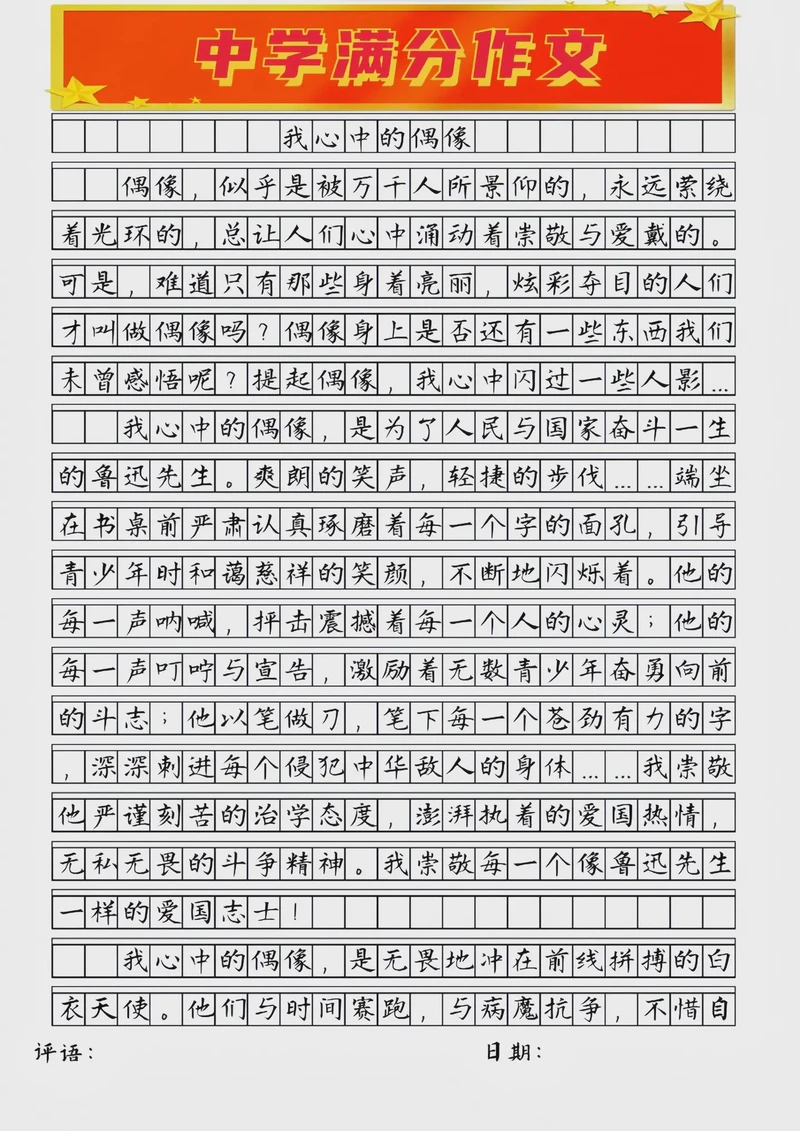 中学满分作文
我心中的偶像
偶像，似乎是被万千人所景仰的，永远萦绕
着光环的，总让人们心中涌动着崇敬与爱戴的。
可是，难道只有那些身着亮丽，炫彩夺目的人们
才叫做偶像吗？偶像身上是否还有一些东西我们
未曾感悟呢？提起偶像，我心中闪过一些人影…
我心中的偶像，是为了人民与国家奋斗一生
的鲁迅先生。爽朗的笑声，轻捷的步伐……端坐
在书桌前严肃认真琢磨着每一个字的面孔，引导
青少年时和蔼慈祥的笑颜，不断地闪烁着。他的
每一声呐喊，抨击震撼着每一个人的心灵；他的
每一声叮咛与宣告，激励着无数青少年奋勇向前
的斗志；他以笔做刀，笔下每一个苍劲有力的字
，深深刺进每个侵犯中华敌人的身体……我崇敬
他严谨刻苦的治学态度，澎湃执着的爱国热情，
无私无畏的斗争精神。我崇敬每一个像鲁迅先生
一样的爱国志士！
我心中的偶像，是无畏地冲在前线拼搏的白
衣天使。他们与时间赛跑，与病魔抗争，不惜自
评语： 日期：